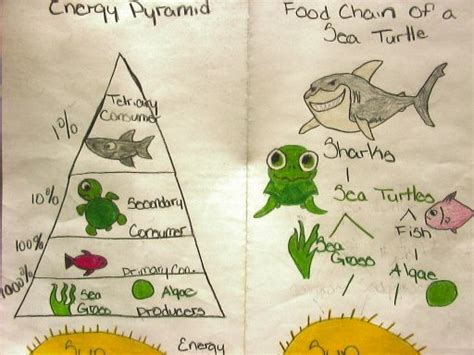 Energy Pyramid
Tetriary
Consumer
1%
10%
Secondary
Consumer
100%
Primary Con.
1000%
Sea
Grass
Algae
Producers
Sun
Energy
Food Chain of a
Sea Turtle
Sharks
Sea Turtles
Fish
Sea
Grass
Algae
Sun